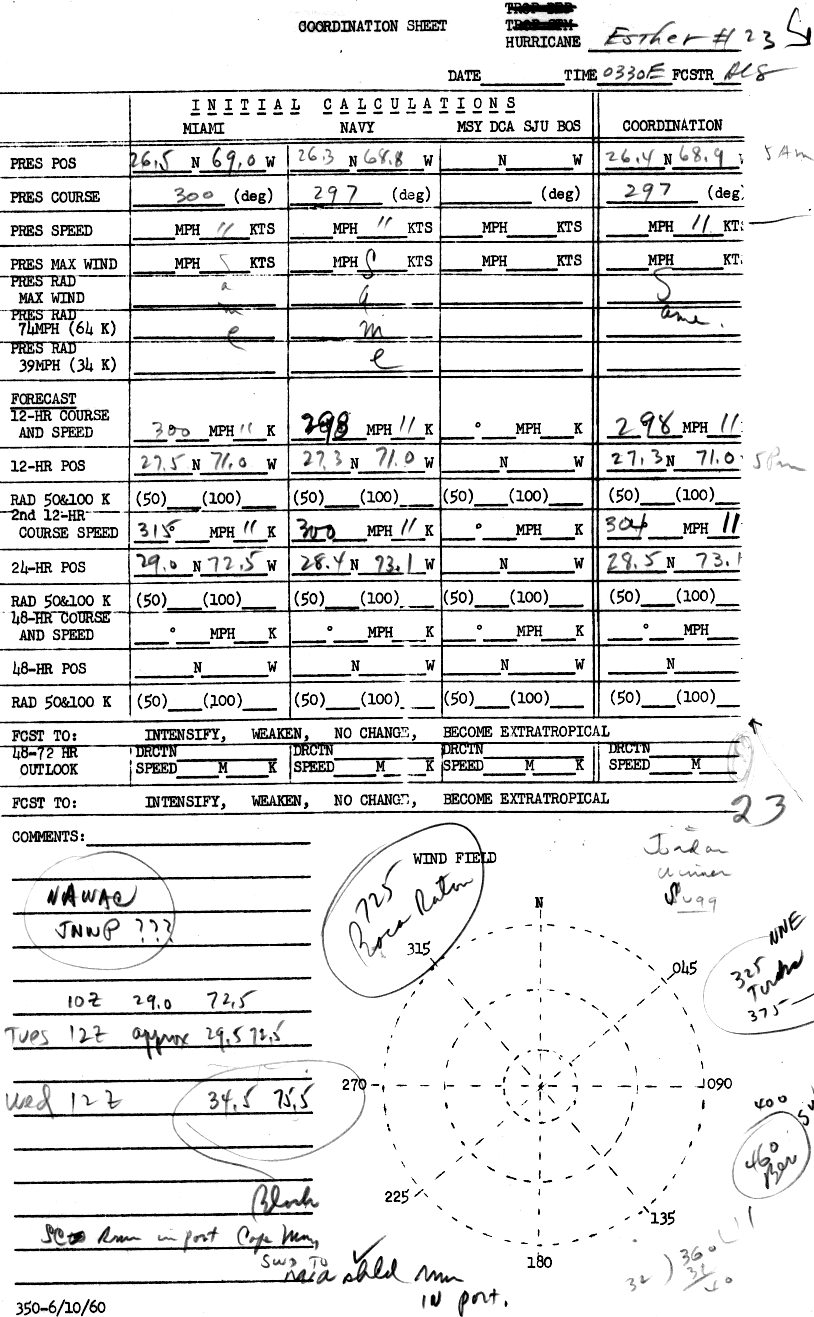 COORDINATION SHEET
TROP DEP
TROP STM
HURRICANE Esther # 23
DATE TIME 0330E FCSTR
INITIAL CALCULATIONS
MIAMI NAVY MSY DCA SJU BOS COORDINATION
PRES POS 26.5 N 69.0 W 26.3 N 68.8 W N W 26.4 N 68.9 5 Am
PRES COURSE 300 (deg) 297 (deg) (deg) 297 (deg)
PRES SPEED MPH 11 KTS MPH 11 KTS MPH KTS MPH 11 KTS
PRES MAX WIND MPH KTS MPH KTS MPH KTS MPH KT
PRES RAD
MAX WIND Same Same Same
PRES RAD
74MPH (64 K)
PRES RAD
39MPH (34 K)
FORECAST
12-HR COURSE
AND SPEED 300 MPH 11 K 298 MPH 11 K ° MPH K 298 MPH 11
12-HR POS 27.5 N 71.0 W 27.3 N 71.0 W N W 27.3 N 71.0 5 Pm
RAD 50&100 K (50) (100) (50) (100) (50) (100) (50) (100)
2nd 12-HR
COURSE SPEED 315° MPH 11 K 300 MPH 11 K ° MPH K 304 MPH 11
24-HR POS 29.0 N 72.5 W 28.4 N 73.1 W N W 28.5 N 73.1
RAD 50&100 K (50) (100) (50) (100) (50) (100) (50) (100)
48-HR COURSE
AND SPEED ° MPH K ° MPH K ° MPH K ° MPH
48-HR POS N W N W N W N
RAD 50&100 K (50) (100) (50) (100) (50) (100) (50) (100)
FCST TO: INTENSIFY, WEAKEN, NO CHANGE, BECOME EXTRATROPICAL
48-72 HR DRCTN DRCTN DRCTN DRCTN
OUTLOOK SPEED M K SPEED M K SPEED M K SPEED M
FCST TO: INTENSIFY, WEAKEN, NO CHANGE, BECOME EXTRATROPICAL
23
COMMENTS:
WIND FIELD
725
Boca Raton
Jordan
NAWAC
JNWP ???
N
315
045
NNE
325
Turks
375
10Z 29.0 72.5
Tues 12Z approx 29.5 72.5
270
090
Wed 12Z 34.5 75.5
400
460
Ber
225
135
180
Block
in port Cape May
SWD TO
shld run
IN port.
32 ) 360
350-6/10/60